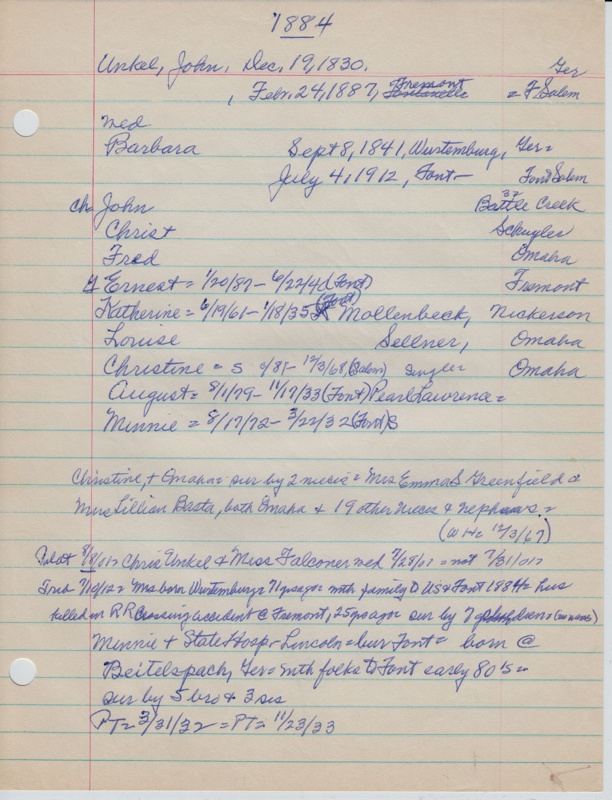 1884
Unkel, John, Dec. 19, 1830. Ger
, Febr. 24, 1887, Fremont = F. Salem
med
Barbara Sept 8, 1841, Wurtemburg, Ger =
July 4, 1912, Font- Font Salem
Ch. John 32 Battle Creek
Christ Schuyler
Fred Omaha
Ernest = 1/20/87 - 6/22/42 (Font) Fremont
Katherine = 6/19/61 - 1/18/35 (Font) Mollenbeck, Nickerson
Louise Sellner, Omaha
Christine = S /85 - 12/3/68 (Salem) single Omaha
August = 8/1/79 - 11/17/33 (Font) Pearl Lawrence =
Minnie = 8/17/72 - 3/22/32 (Font) S
Christine, + Omaha = sur by 2 nieces = Mrs Emma S Greenfield &
Mrs Lillian Basta, both Omaha + 19 other nieces & nephews. =
(WH = 12/3/67)
Chris Unkel & Miss Falconer wed 7/28/01 = not 7/31/01
7/10/12 = Mrs born Wurtemburg = 71 yrs ago = with family to US & Font 1884 = hus
killed in RR Crossing accident @ Fremont, 25 yrs ago sur by 7
Minnie + State Hosp - Lincoln = bur Font = born @
Beitelspach, Ger = with folks to Font early 80's =
sur by 5 bro & 3 sis
PT = 3/31/32 = PT = 11/23/33